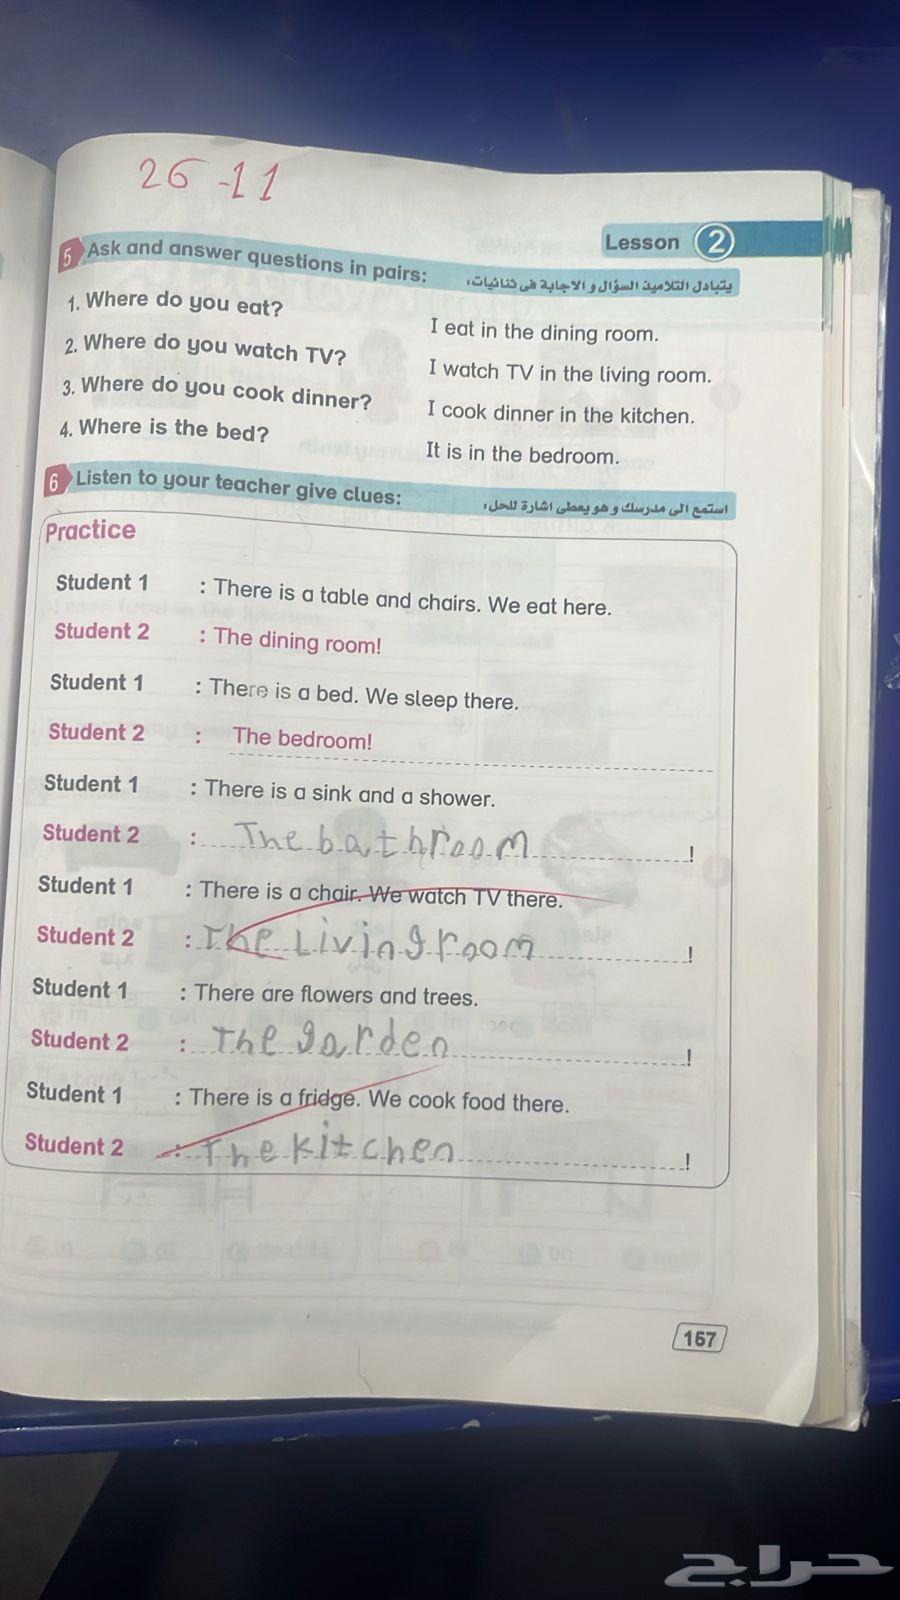 26 - 11
Lesson 2
5 Ask and answer questions in pairs: يتبادل التلاميذ السؤال و الاجابة فى ثنائيات:
1. Where do you eat? I eat in the dining room.
2. Where do you watch TV? I watch TV in the living room.
3. Where do you cook dinner? I cook dinner in the kitchen.
4. Where is the bed? It is in the bedroom.
6 Listen to your teacher give clues: استمع الى مدرسك و هو يعطى اشارة للحل:
Practice
Student 1 : There is a table and chairs. We eat here.
Student 2 : The dining room!
Student 1 : There is a bed. We sleep there.
Student 2 : The bedroom!
Student 1 : There is a sink and a shower.
Student 2 : The bathroom !
Student 1 : There is a chair. We watch TV there.
Student 2 : The Living room !
Student 1 : There are flowers and trees.
Student 2 : The garden !
Student 1 : There is a fridge. We cook food there.
Student 2 : The kitchen !
157
حراج